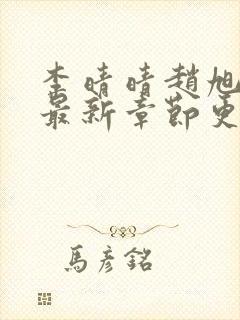 李晴晴趙旭
最新章節更
馬彥銘